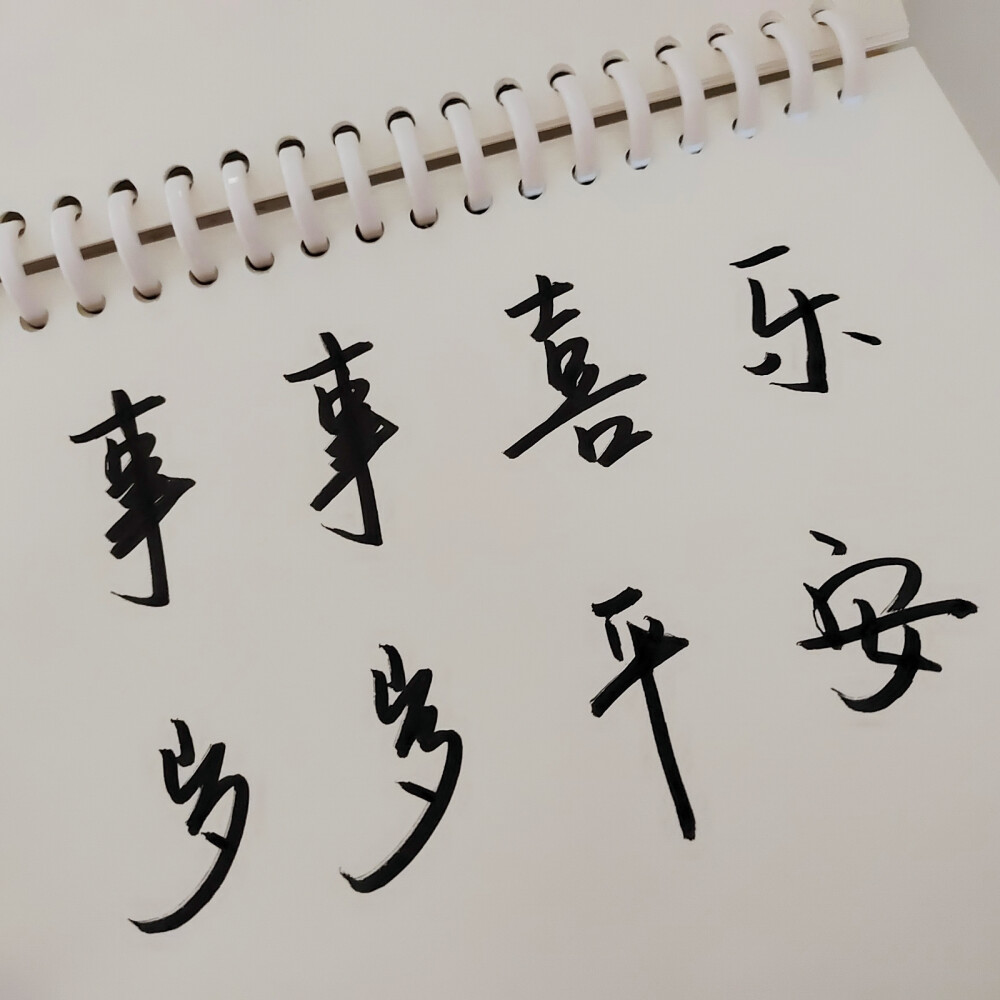 事事喜乐
岁岁平安